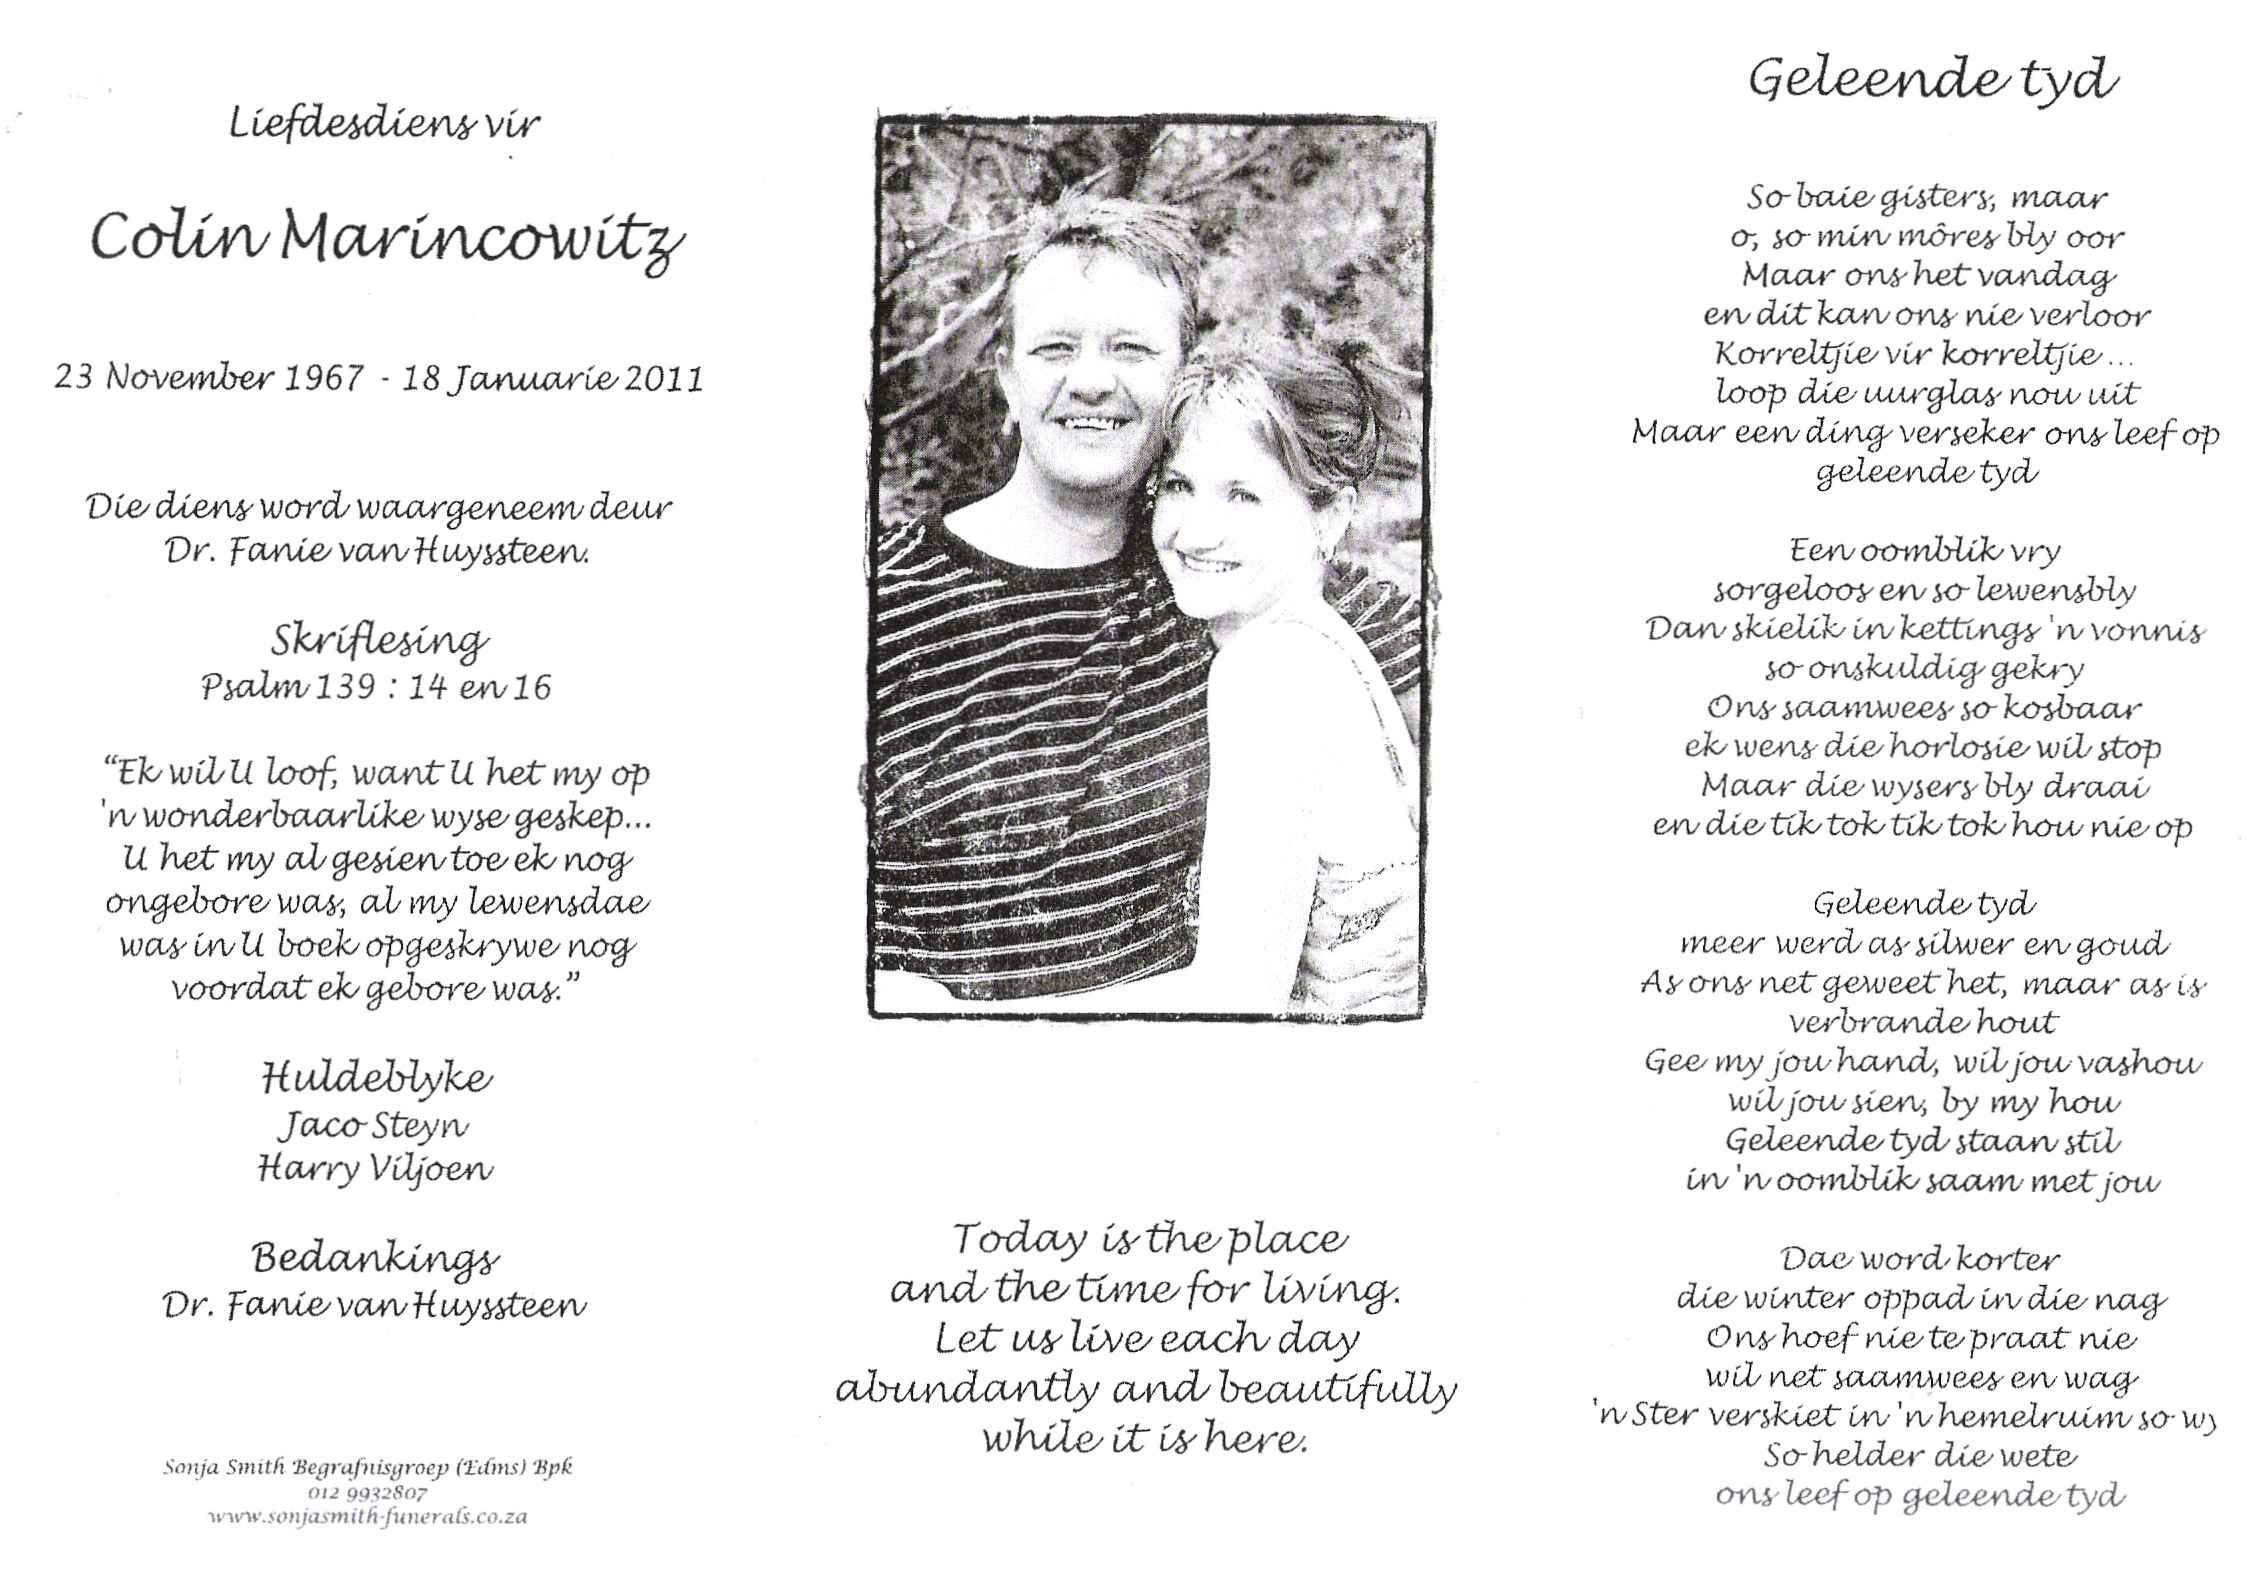 Liefdesdiens vir
Colin Marincowitz
23 November 1967 - 18 Januarie 2011
Die diens word waargeneem deur
Dr. Fanie van Huyssteen.
Skriflesing
Psalm 139 : 14 en 16
“Ek wil U loof, want U het my op
'n wonderbaarlike wyse geskep...
U het my al gesien toe ek nog
ongebore was, al my lewensdae
was in U boek opgeskrywe nog
voordat ek gebore was.”
Huldeblyke
Jaco Steyn
Harry Viljoen
Bedankings
Dr. Fanie van Huyssteen
Sonja Smith Begrafnisgroep (Edms) Bpk
012 9932807
www.sonjasmith-funerals.co.za
Today is the place
and the time for living.
Let us live each day
abundantly and beautifully
while it is here.
Geleende tyd
So baie gisters, maar
o, so min môres bly oor
Maar ons het vandag
en dit kan ons nie verloor
Korreltjie vir korreltjie ...
loop die uurglas nou uit
Maar een ding verseker ons leef op
geleende tyd
Een oomblik vry
sorgeloos en so lewensbly
Dan skielik in kettings 'n vonnis
so onskuldig gekry
Ons saamwees so kosbaar
ek wens die horlosie wil stop
Maar die wysers bly draai
en die tik tok tik tok hou nie op
Geleende tyd
meer werd as silwer en goud
As ons net geweet het, maar as is
verbrande hout
Gee my jou hand, wil jou vashou
wil jou sien, by my hou
Geleende tyd staan stil
in 'n oomblik saam met jou
Dae word korter
die winter oppad in die nag
Ons hoef nie te praat nie
wil net saamwees en wag
'n Ster verskiet in 'n hemelruim so
So helder die wete
ons leef op geleende tyd